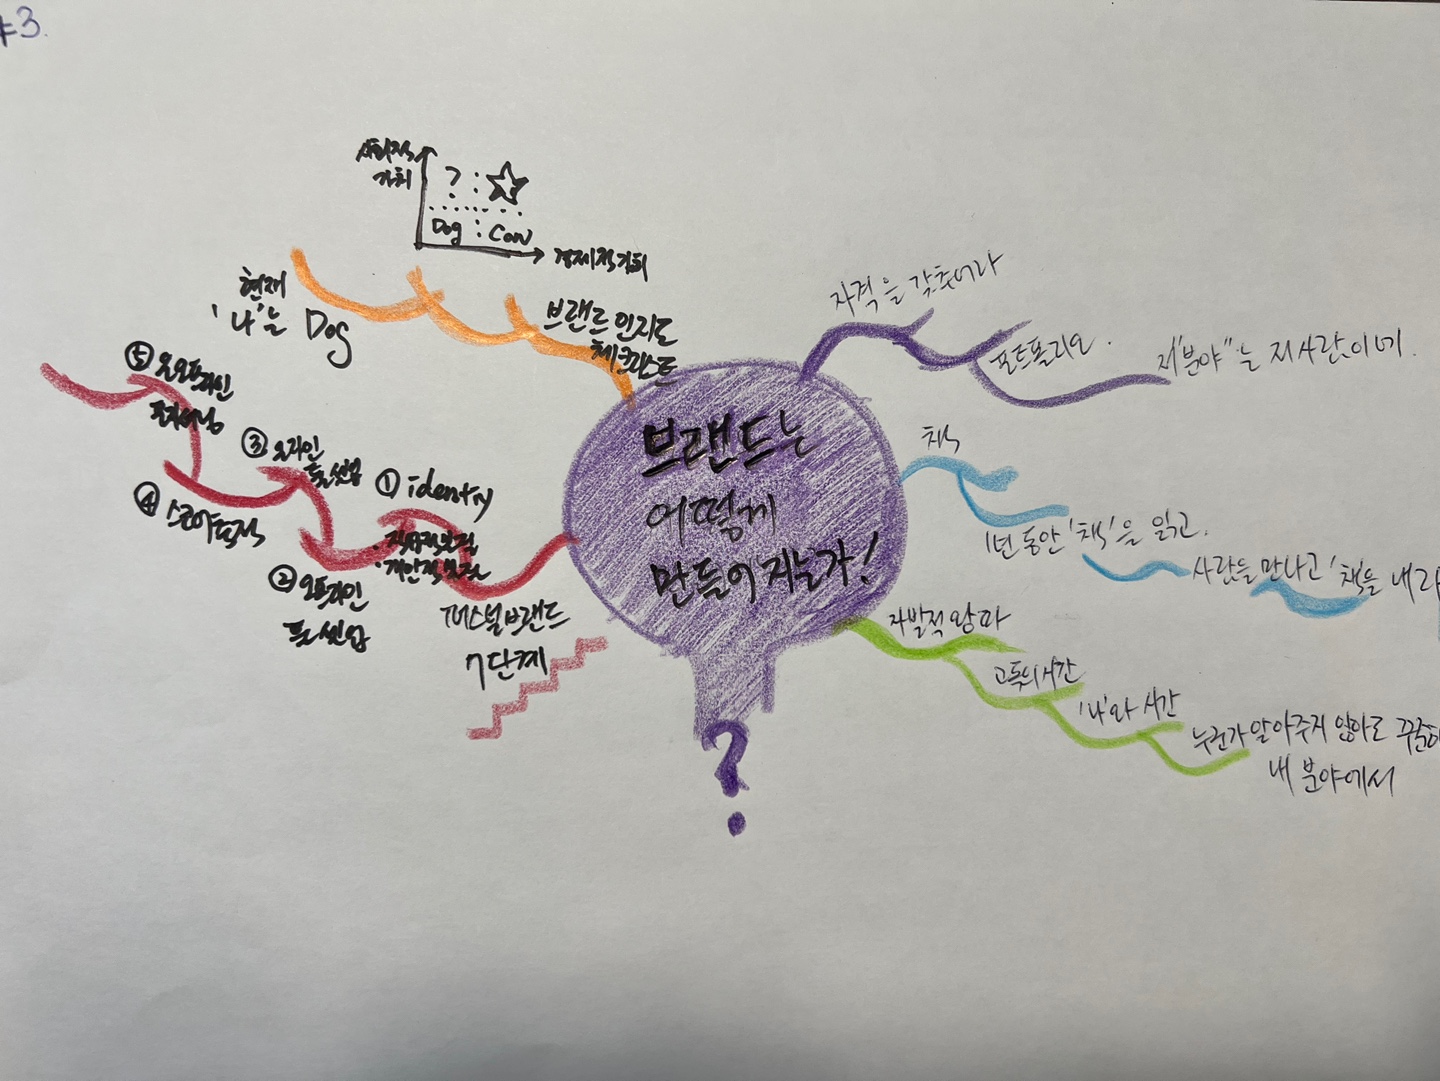 #3.
브랜드는
어떻게
만들어지는가!
?
사회적
가치
? ☆
Dog Cow
경제적가치
브랜드 인지도
체크리스트
현재
'나'는 Dog
자격을 갖추어라
포트폴리오.
저"분야"는 저사람이네.
책
1년 동안 '책'을 읽고.
사람들 만나고 '책을 내라
자발적 왕따
고독의시간
'나'와 시간
누군가 알아주지 않아도 꾸준히
내 분야에서
퍼스널브랜드
7단계
① identiy
· 직업적
· 개인적
② 오프라인
툴 셋업
③ 온라인
툴 셋업
④
⑤ 온오프라인